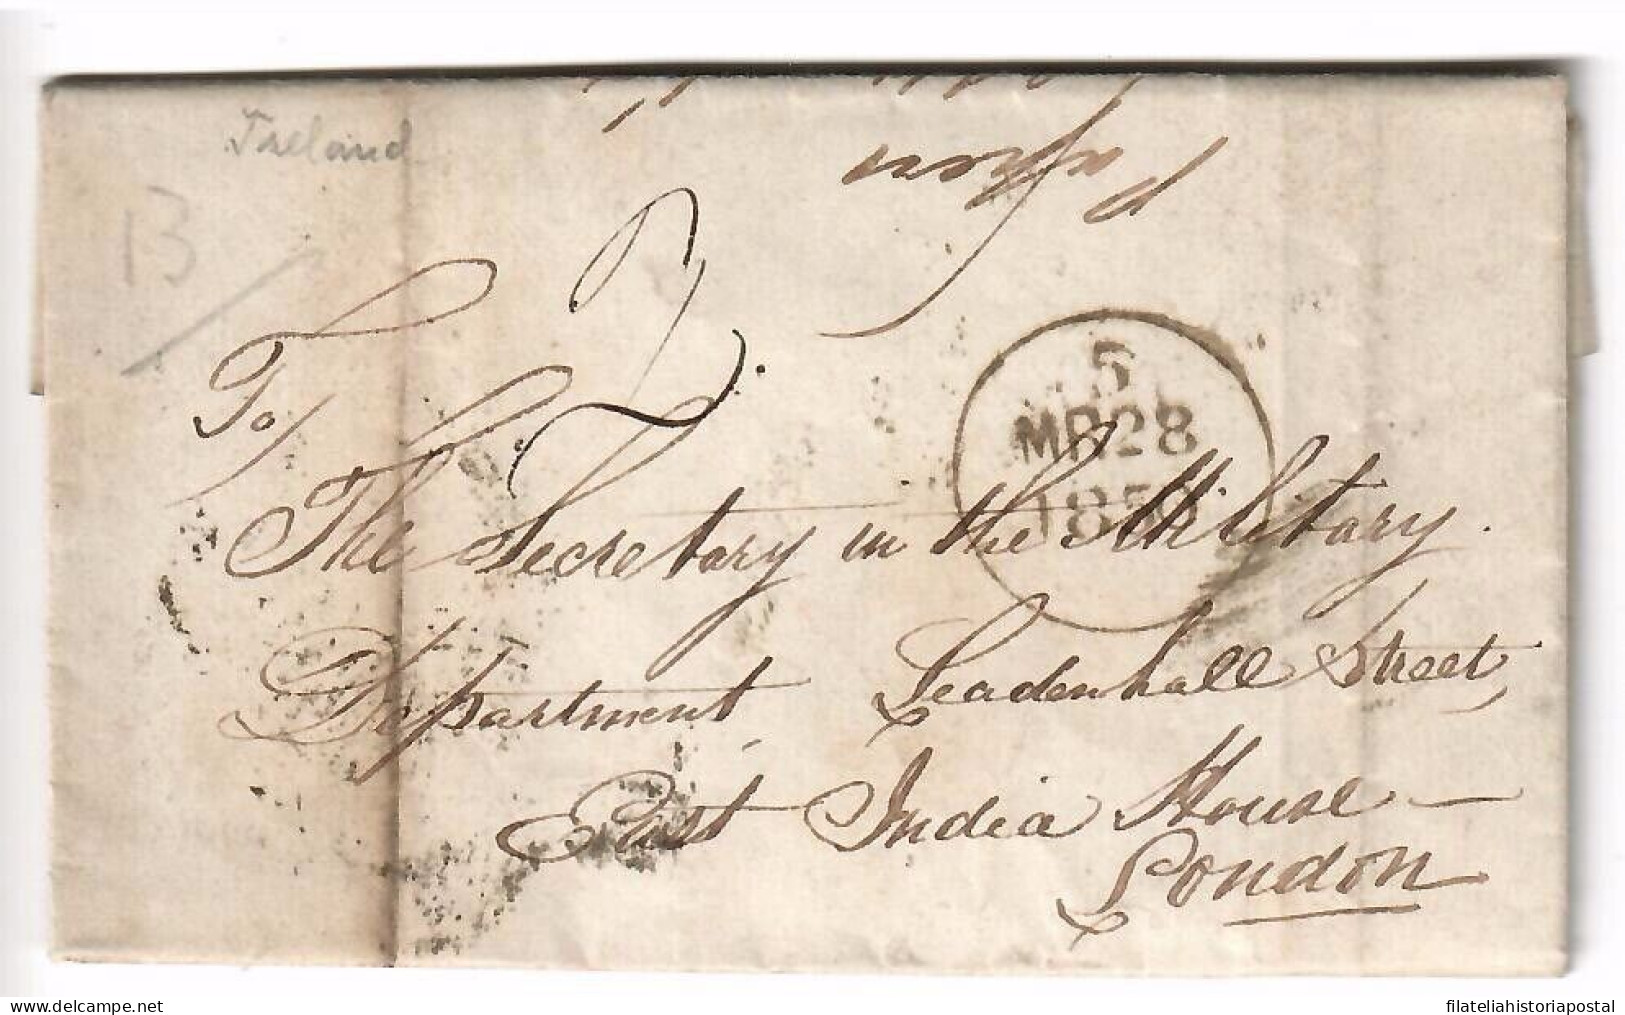 Ireland
13/
2
To/
The Secretary in the Military
Department, Leadenhall Street,
East India House —
London
5
MR 28
www.delcampe.net
filateliahistoriapostal